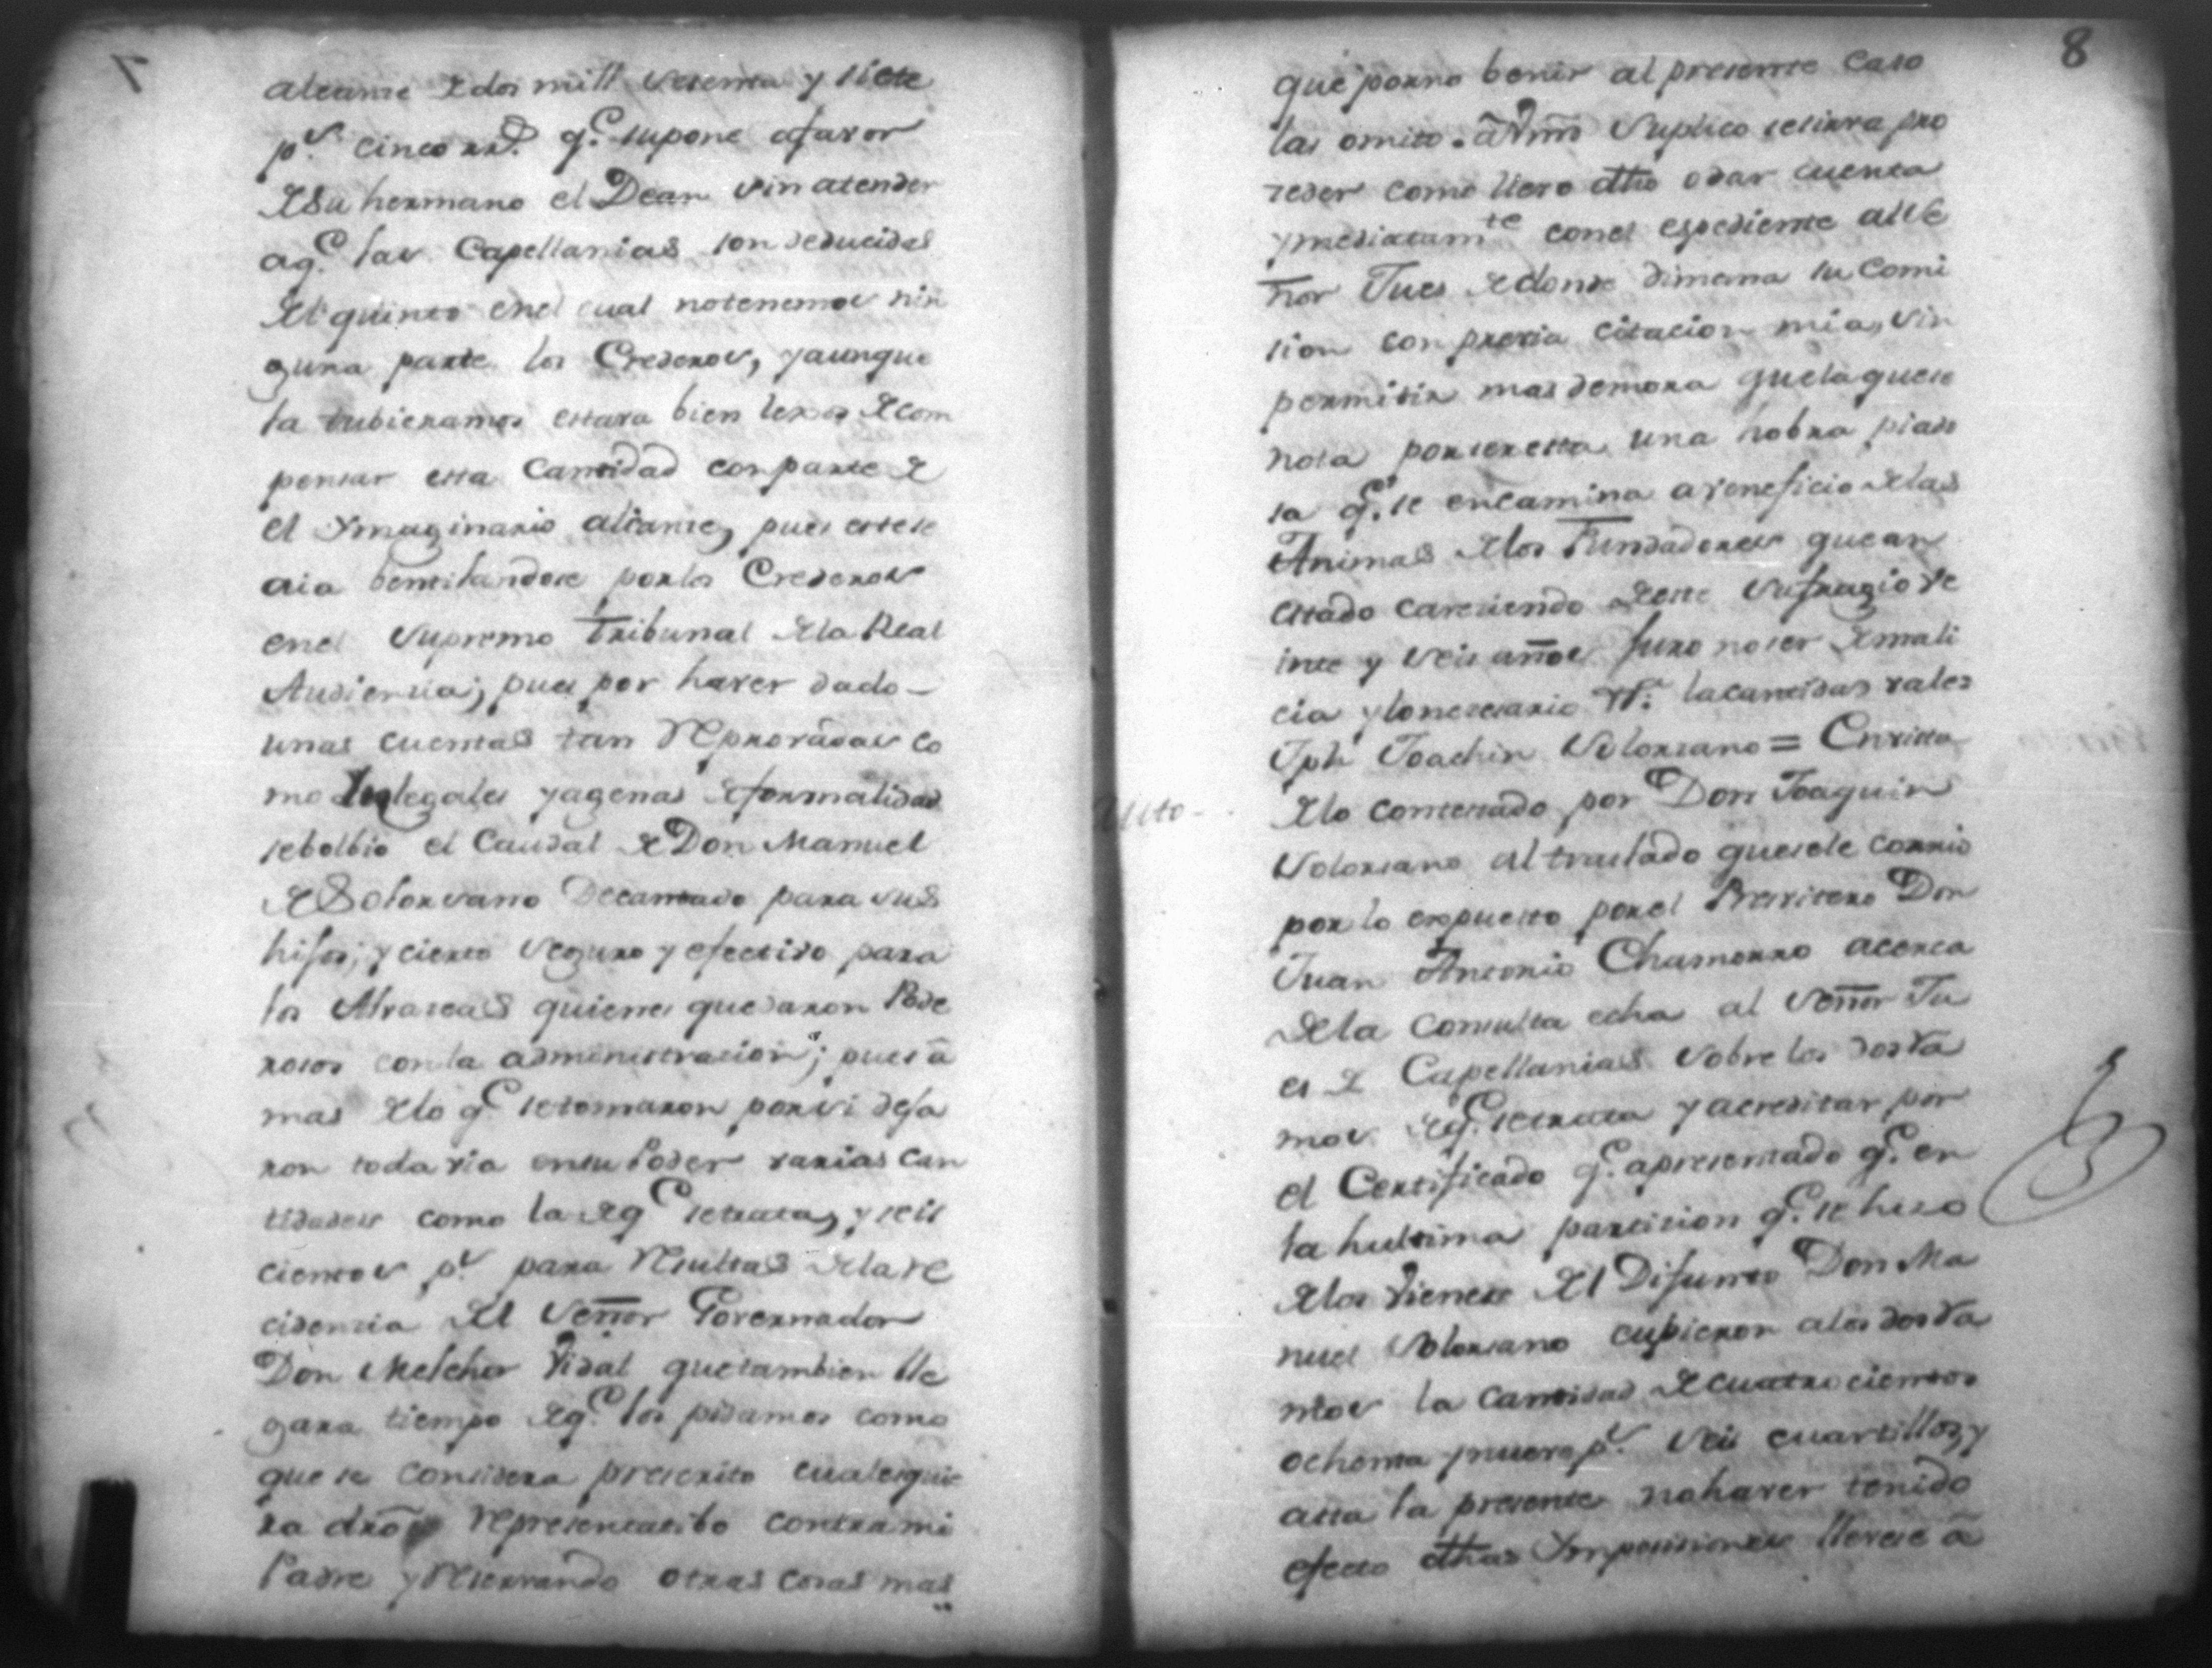 7
alcanse de dos mill setenta y siete
p.s cinco rr.s q.e supone afavor
de Su hermano el Dean sin atender
aq.e las Capellanias son deducidas
del quinto enel cual notenemos nin
guna parte los Erederos, yaunque
la tubieramos estava bien lexos de com
pensar esta Cantidad conparte de
el Ymaginario alcanse, pues estese
aia bentilandose porlos Erederos
enel Supremo Tribunal dela Real
Audiencia; pues por haver dado
unas cuentas tan reprovadas co
mo Inlegales yagenas deformalidad
sebolbio el Caudal de Don Manuel
de Solorsano Decantado para sus
hijos; y cierto seguro y efectivo para
los Alvaseas quienes quedaron Pode
rosos conla administracion; pues â
mas delo q.e setomaron porsi deja
ron toda via ensu Poder varias can
tidades como la deq.e setrata, y seis
cientos p.s para resultas dela re
cidencia del Señor Governador
Don Melchor Vidal quetambien lle
gara tiempo deq.e los pidamos como
que se considera prescrito cualesquie
ra dro representatibo contra mi
Padre y reservando otras cosas mas
8
que porno benir al presente caso
las omito. â Vm Suplico sesirva pro
seder como llevo dho odar cuenta
ymediatam.te conel espediente alse
ñor Jues dedonde dimana su Comi
sion con previa citacion mia, sin
permitir mas demora quela quese
nota porseresta una hobra piado
sa q.e se encamina aveneficio delas
Animas delos Fundadores quean
estado careciendo deeste sufragio ve
inte y seis años juro noser demali
cia ylonecesario V.a lacantidad vale
Jph Joachin Solorsano = Envista
Auto
delo contestado por Don Joaquin
Solorsano al traslado quesele corrio
por lo expuesto porel Presvitero Don
Juan Antonio Chamorro acerca
dela Consulta echa al Señor Ju
es de Capellanias sobre los dos Ra
mos deq.e setrata yacreditar por
el Certificado q.e apresentado q.e en
la hultima particion q.e se hiso
delos vienes del Difunto Don Ma
nuel Solorsano cupieron alos dos Ra
mos la Cantidad decuatrocientos
ochenta ynueve p.s seis cuartillos, y
asta la presente nohaver tenido
efecto dhas Ymposisiones llevese â